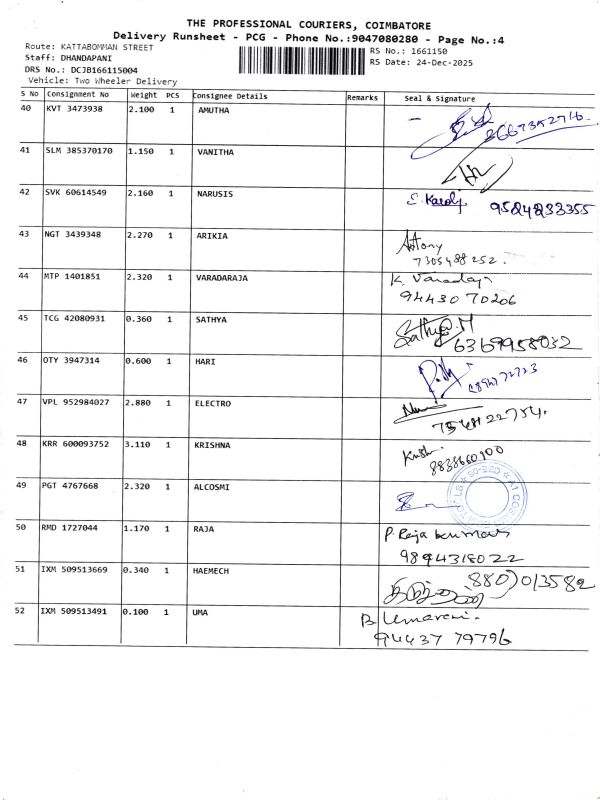 THE PROFESSIONAL COURIERS, COIMBATORE
Delivery Runsheet - PCG - Phone No.:9047080280 - Page No.:4
Route: KATTABOMMAN STREET
RS No.: 1661150
Staff: DHANDAPANI
RS Date: 24-Dec-2025
DRS No.: DCJB166115004
Vehicle: Two Wheeler Delivery
S No Consignment No Weight PCS Consignee Details Remarks Seal & Signature
40 KVT 3473938 2.100 1 AMUTHA
41 SLM 385370170 1.150 1 VANITHA
42 SVK 60614549 2.160 1 NARUSIS
9524233355
43 NGT 3439348 2.270 1 ARIKIA Antony
7305488252.
44 MTP 1401851 2.320 1 VARADARAJA K. Varadaja
9443070206
45 TCG 42080931 0.360 1 SATHYA Sathya.M
6369958032
46 OTY 3947314 0.600 1 HARI
47 VPL 952984027 2.880 1 ELECTRO
48 KRR 600093752 3.110 1 KRISHNA Krish
8838660100
49 PGT 4767668 2.320 1 ALCOSMI
50 RMD 1727044 1.170 1 RAJA P. Raja kumar
9894318022
51 IXM 509513669 0.340 1 HAEMECH
52 IXM 509513491 0.100 1 UMA B. Umarani.
94437 79796